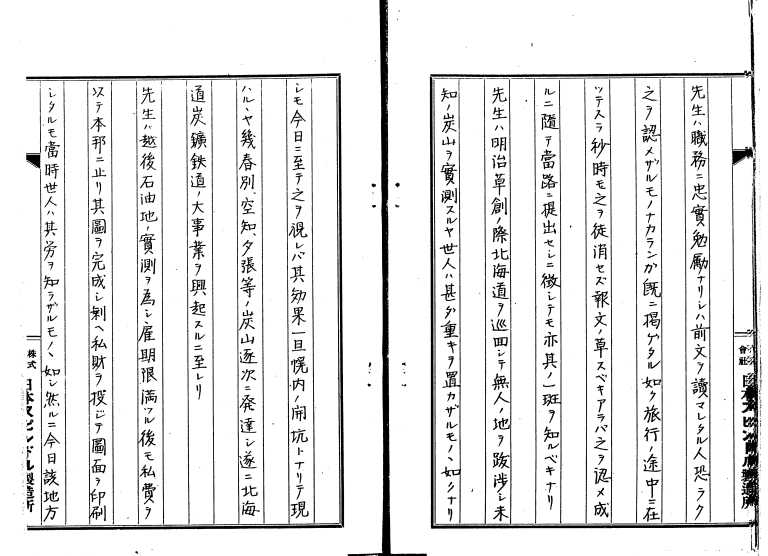 先生ハ職務ニ忠實勉勵ナリシハ前文ヲ讀マレタル人恐ラク
之ヲ認メザルモノナカランか既ニ掲ゲタル如ク旅行ノ途中ニ在
ツテスラ秒時モ之ヲ徒消セズ報文ノ草スベキアラバ之ヲ認メ成
ルニ隨テ當路ニ提出セシニ徴シテモ亦其ノ一斑ヲ知ルベキナリ
先生ハ明治草創ノ際北海道ヲ巡囬シテ無人ノ地ヲ跋渉シ未
知ノ炭山ヲ實測スルヤ世人ハ甚ダ重キヲ置カザルモノヽ如クナリ
株式會社 日本スピンドル製造所
シモ今日ニ至テ之ヲ視レバ其効果一旦幌内ノ開坑トナリテ現
ハルヽヤ幾春別、空知、夕張等ノ炭山逐次ニ発達シ遂ニ北海
道炭鑛鉄道ノ大事業ヲ興起スルニ至レリ
先生ハ越後石油地ノ實測ヲ為シ雇期限満ツル後モ私費ヲ
以テ本邦ニ止リ其圖ヲ完成シ剰ヘ私財ヲ投ジテ圖面ヲ印刷
シタルモ當時世人ハ其労ヲ知ラザルモノヽ如シ然ルニ今日該地方
株式 日本スピンドル製造所